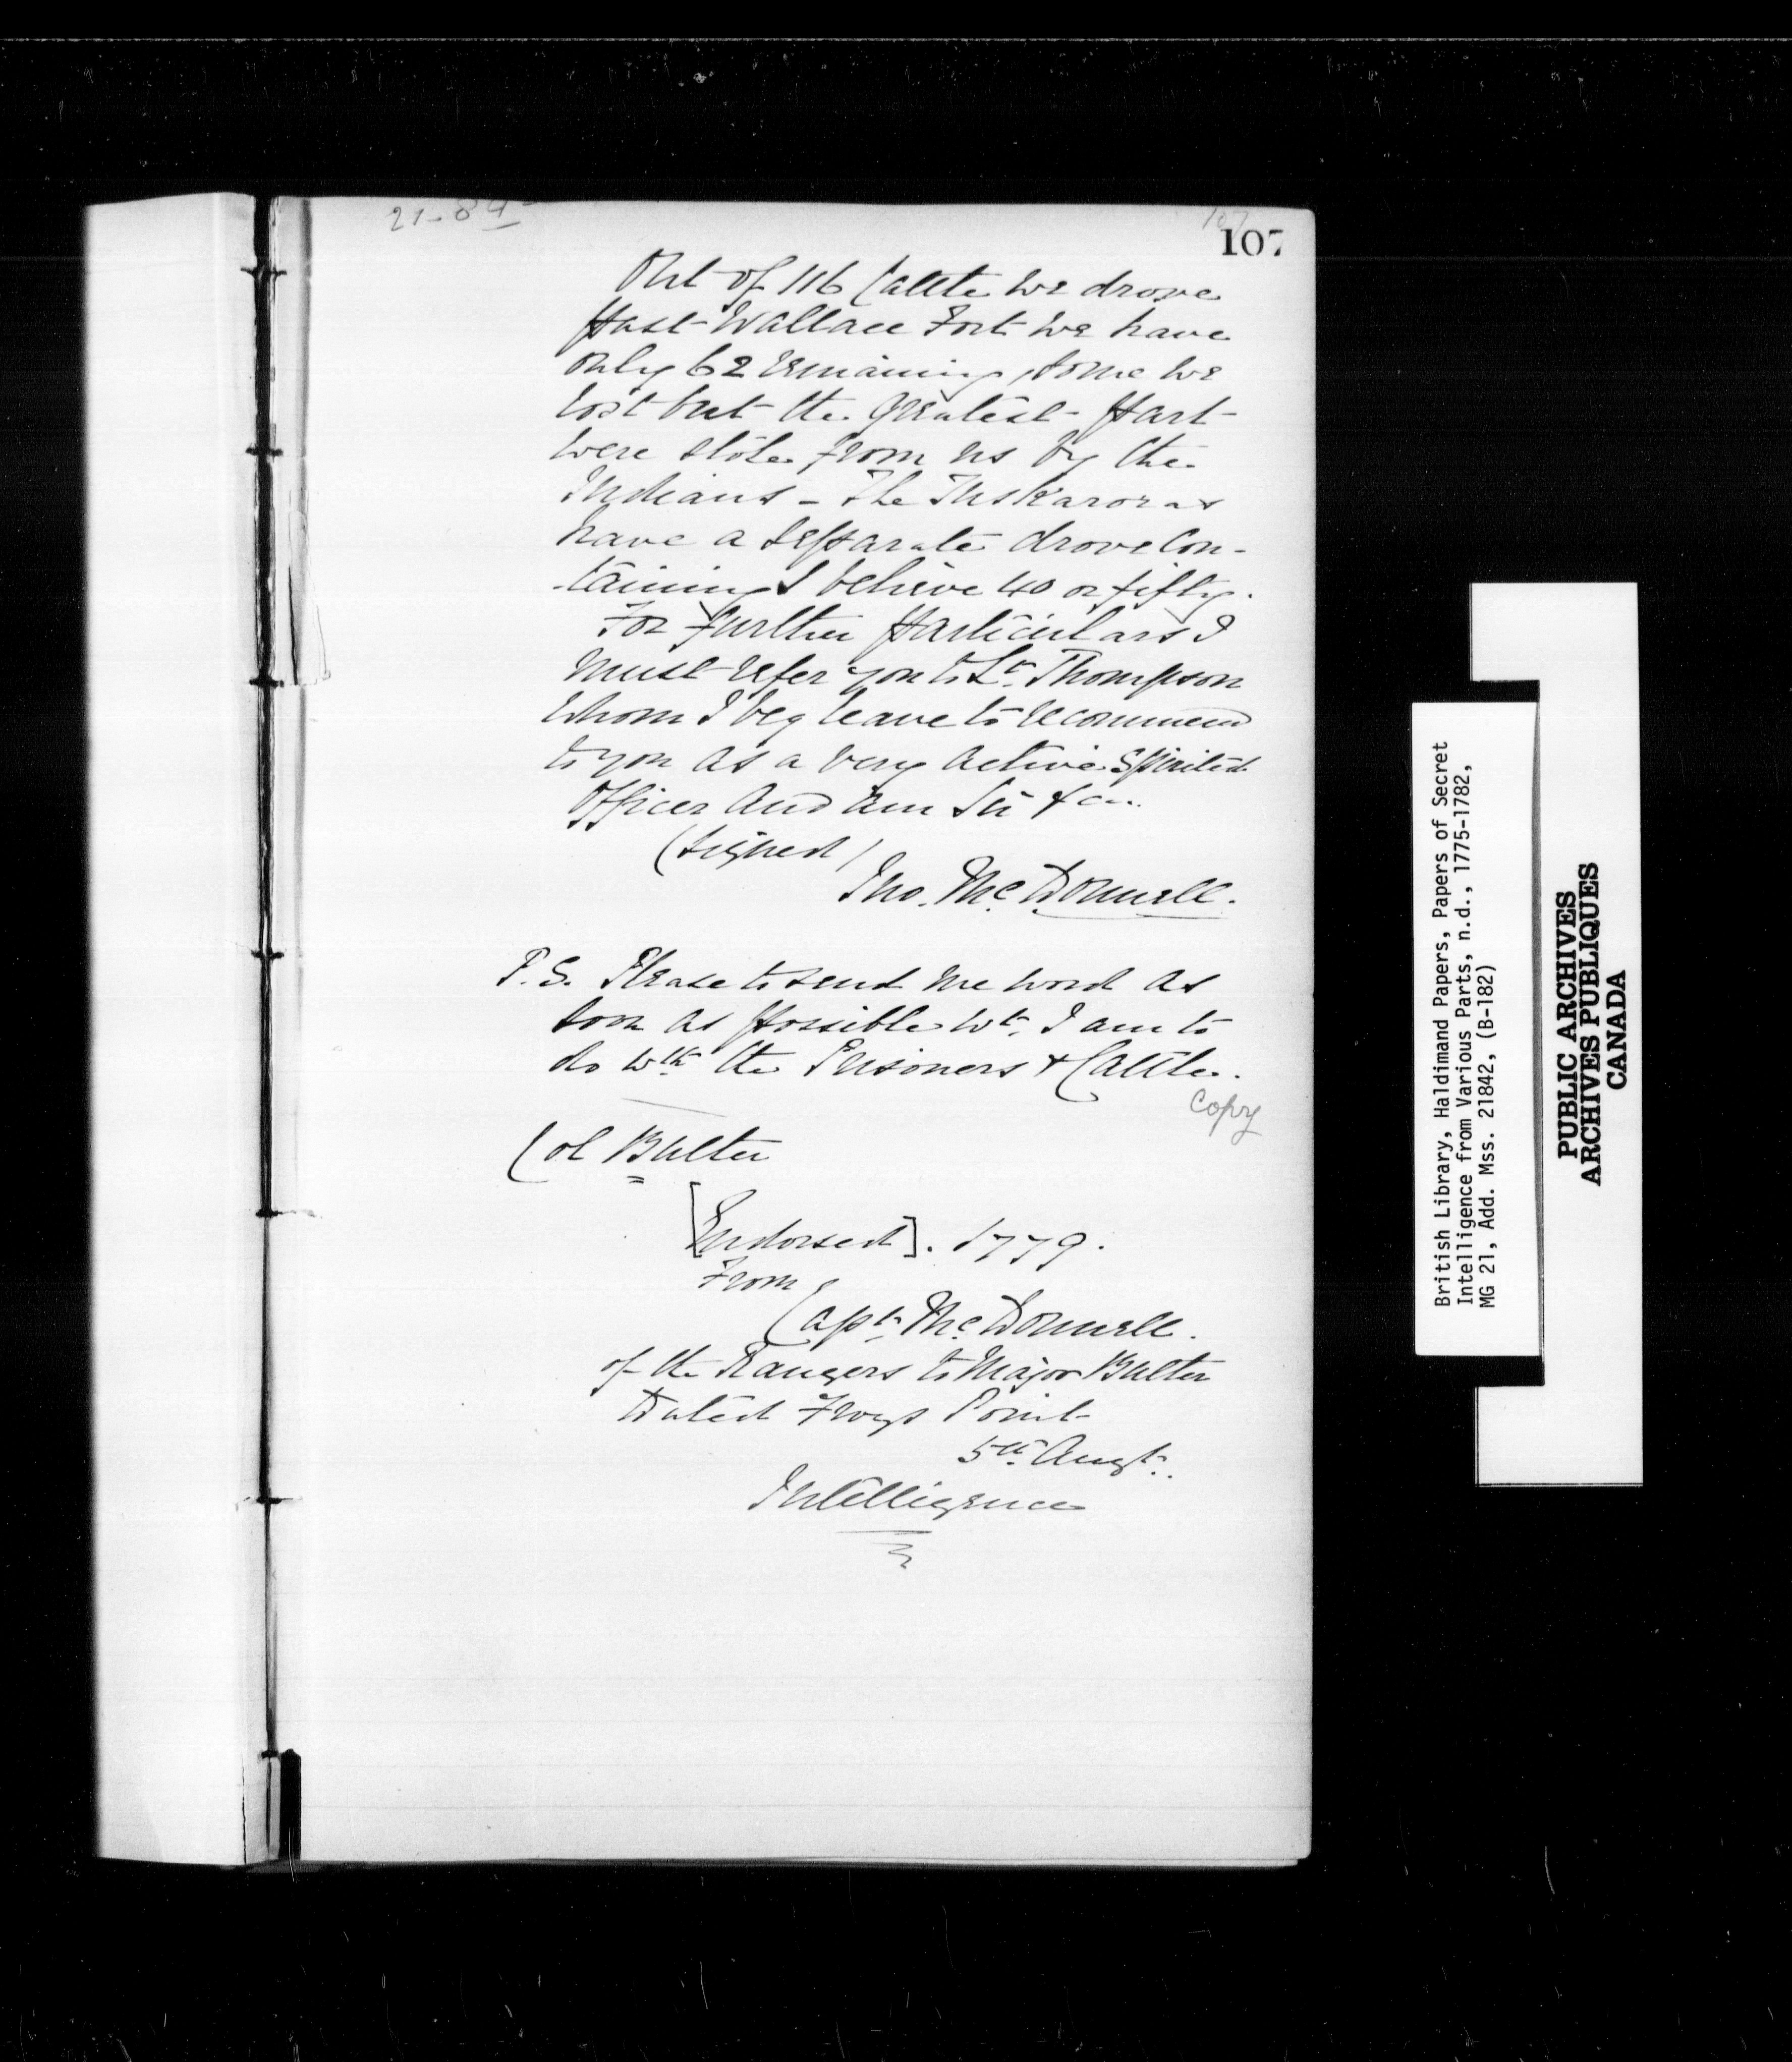 107
Out of 116 Cattle we drove
past Wallace Fort we have
only 62 remaining, some we
lost but the greatest part
were stole from us by the
Indians - The Tuskaroras
have a separate drove Con-
-taining I believe 40 or fifty.
For further particulars I
must refer you to Lt. Thompson
whom I beg leave to recommend
to you as a very active Spirited
Officer and am Sir &c..
(Signed)
Jno. Mc.Donnell.
P.S. Please to send me word as
soon as possible wt. I am to
do wth the Prisoners & Cattle.
Copy
Col Butler
[Endorsed]. 1779.
From
Capt. Mc.Donnell.
of the Rangers to Major Butler
Dated Frogs Point
5th Augt..
Intelligence
British Library, Haldimand Papers, Papers of Secret
Intelligence from Various Parts, n.d., 1775-1782,
MG 21, Add. Mss. 21842, (B-182)
PUBLIC ARCHIVES
ARCHIVES PUBLIQUES
CANADA